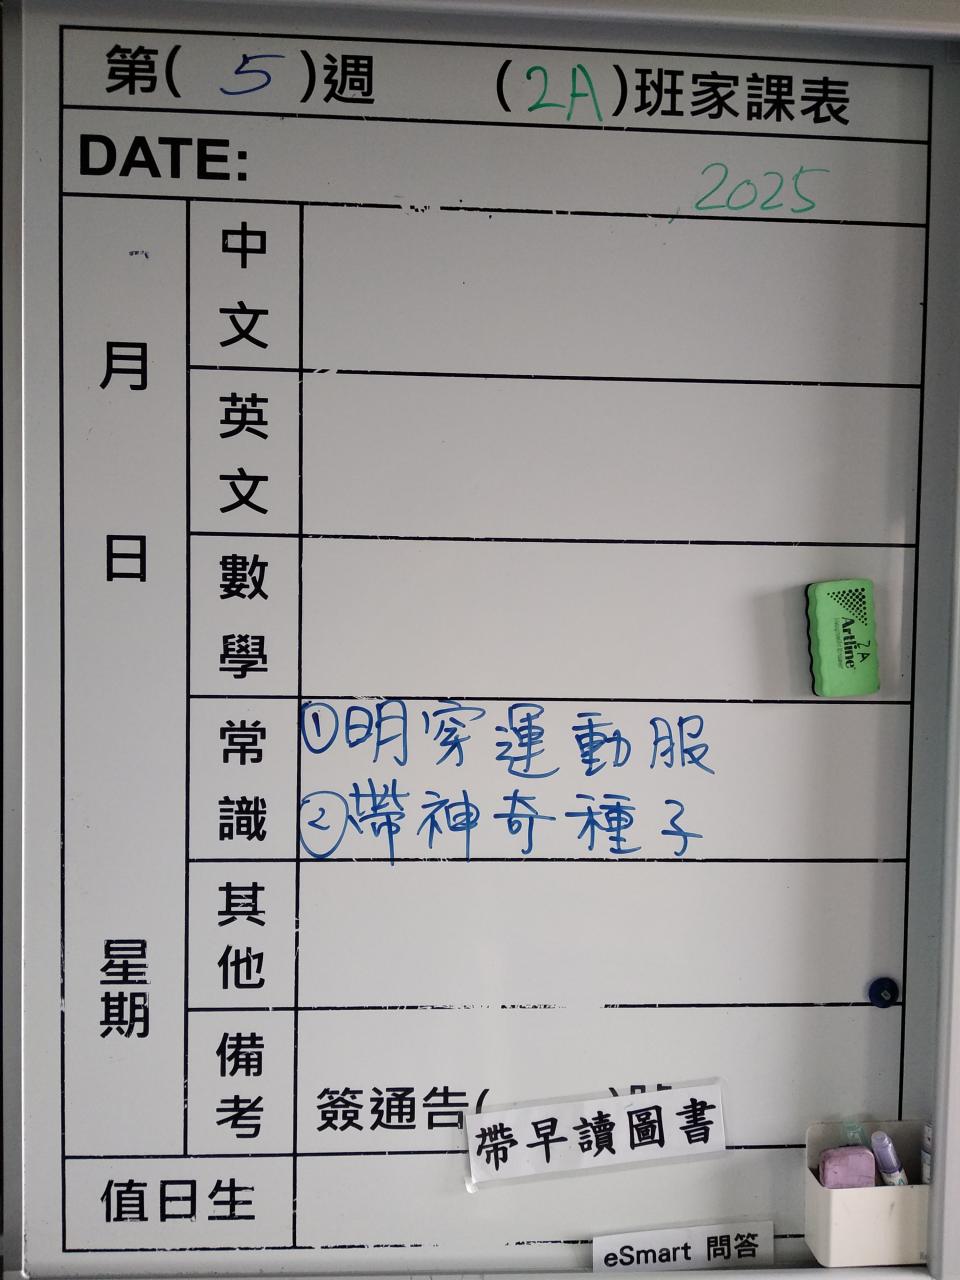 第( 5 )週 (2A)班家課表
DATE:
2025
月
日
星期
中文
英文
數學
Artline
2A
常識
①明穿運動服
②帶神奇種子
其他
備考
簽通告(
帶早讀圖書
值日生
eSmart 問答